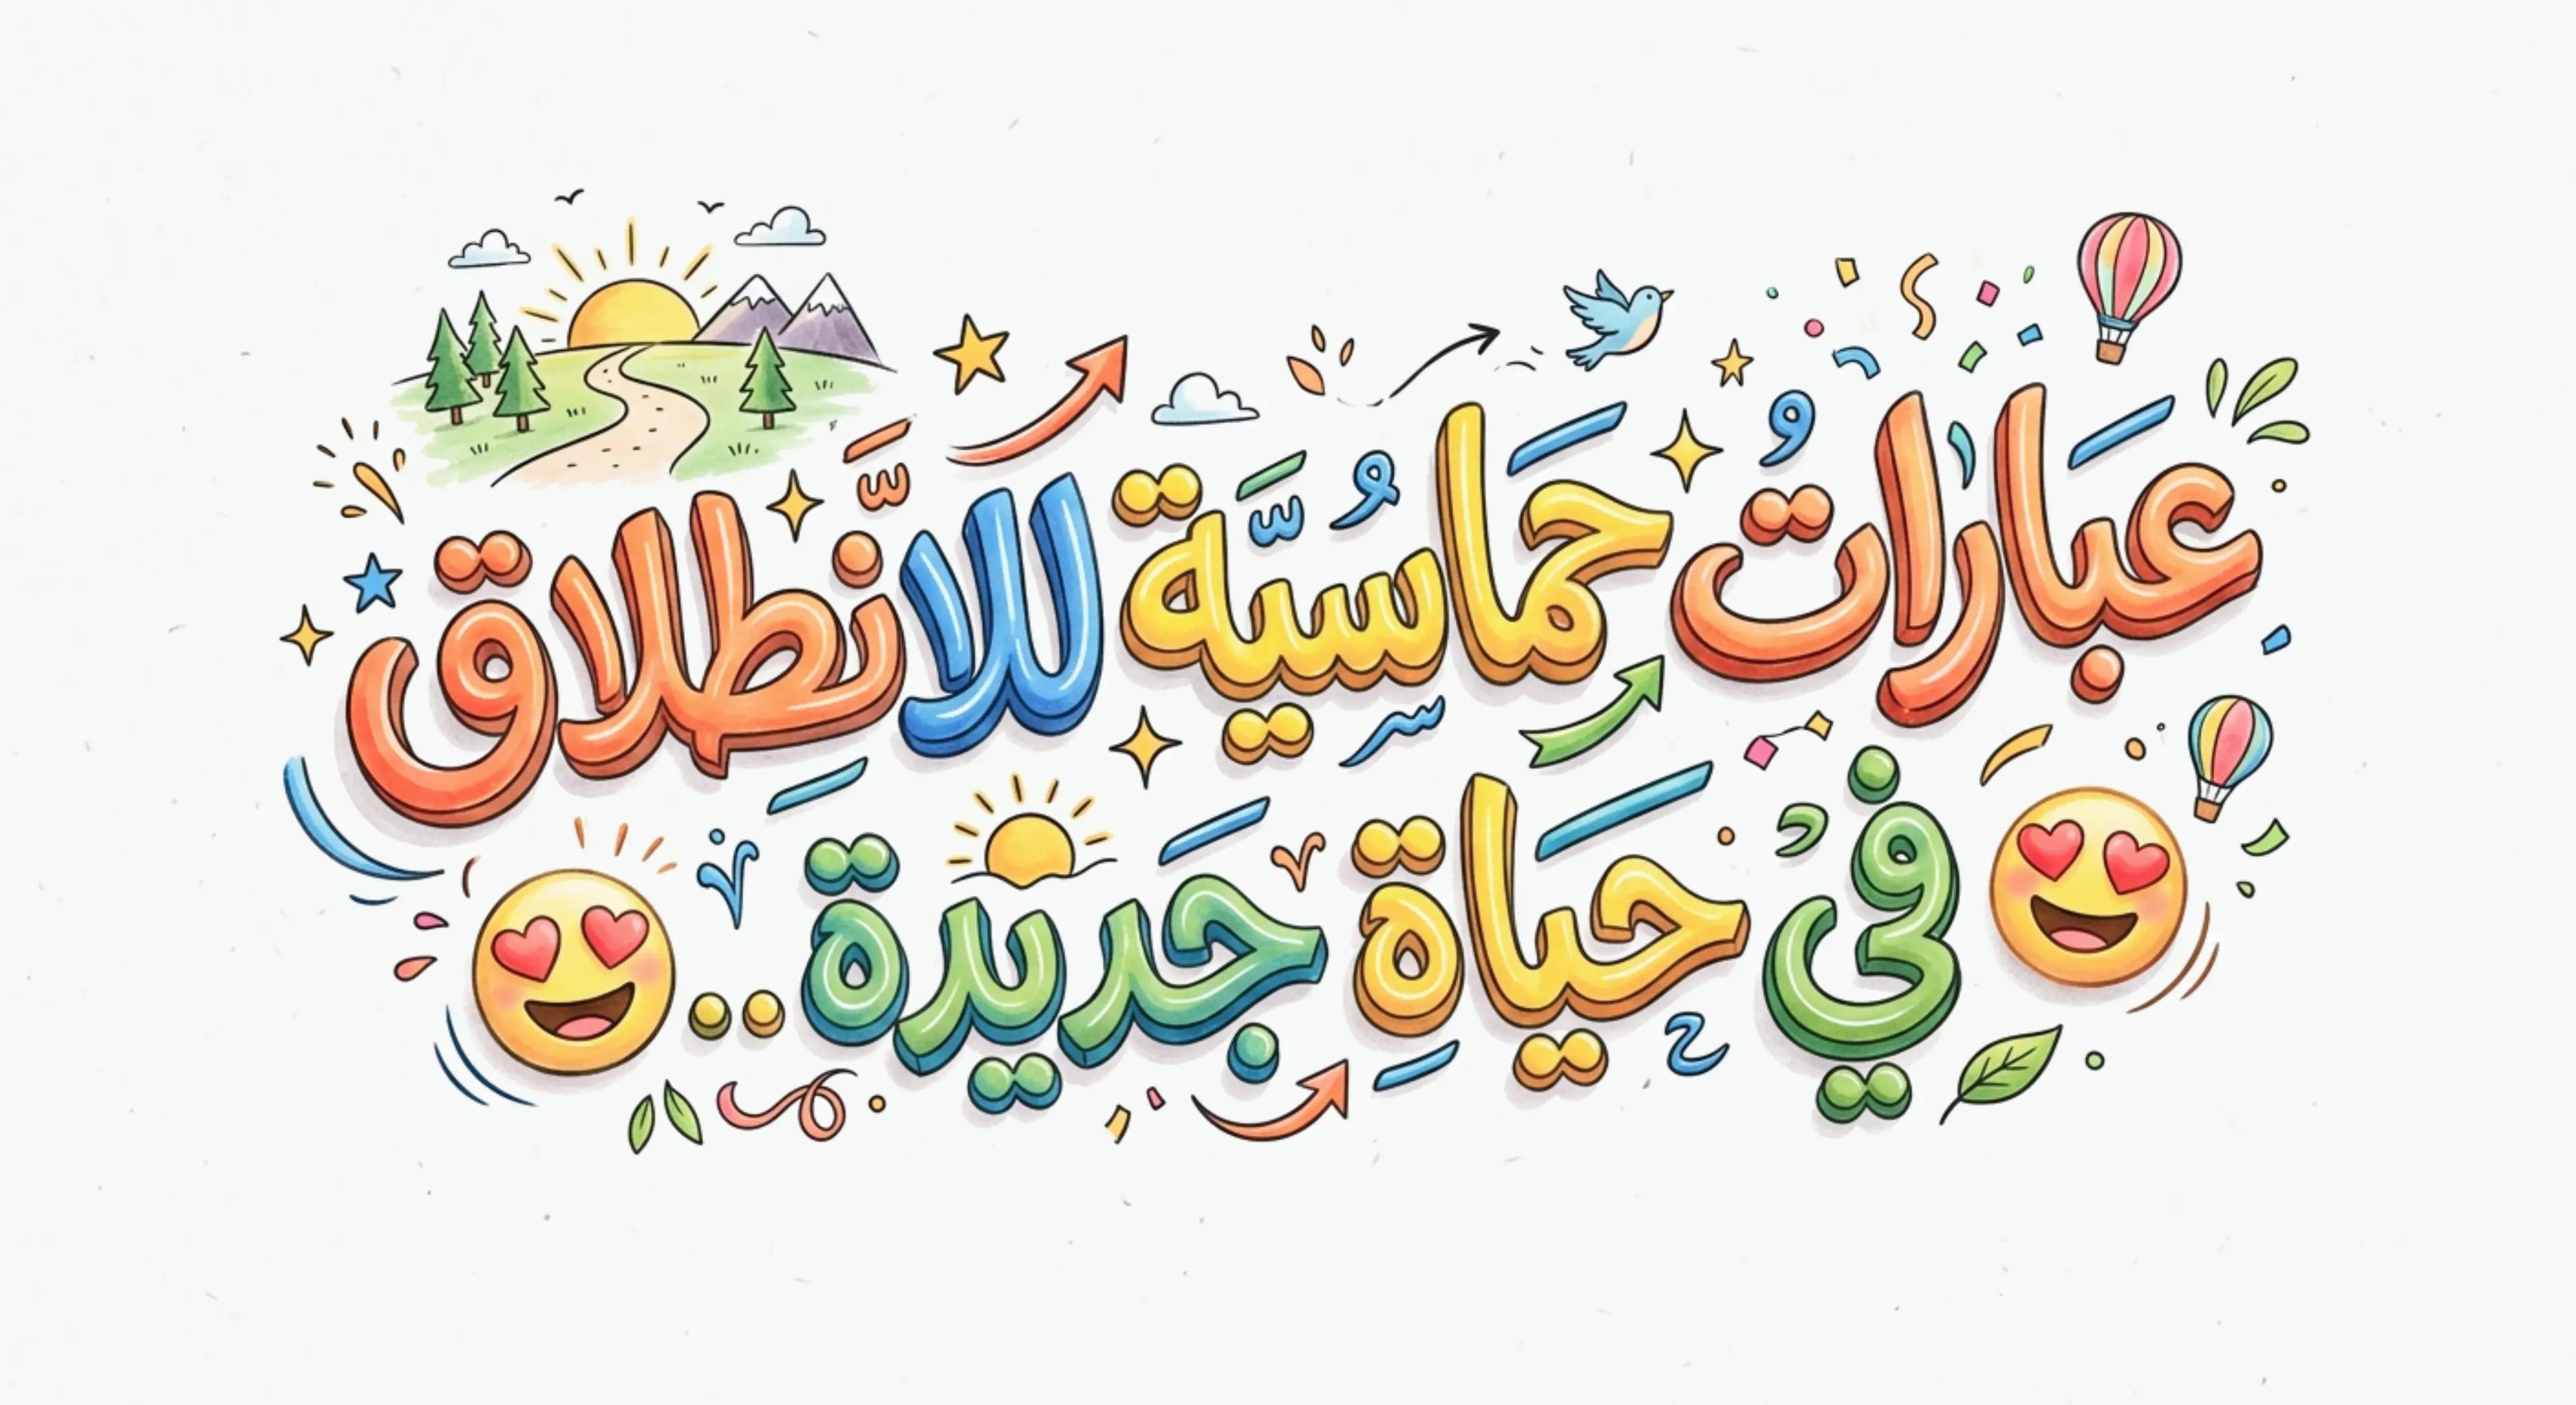 عَبَارَاتُ حَمَاسُيَّة للانَّطِلاق
😍 في حَيَاةِ جَديدة.. 😍